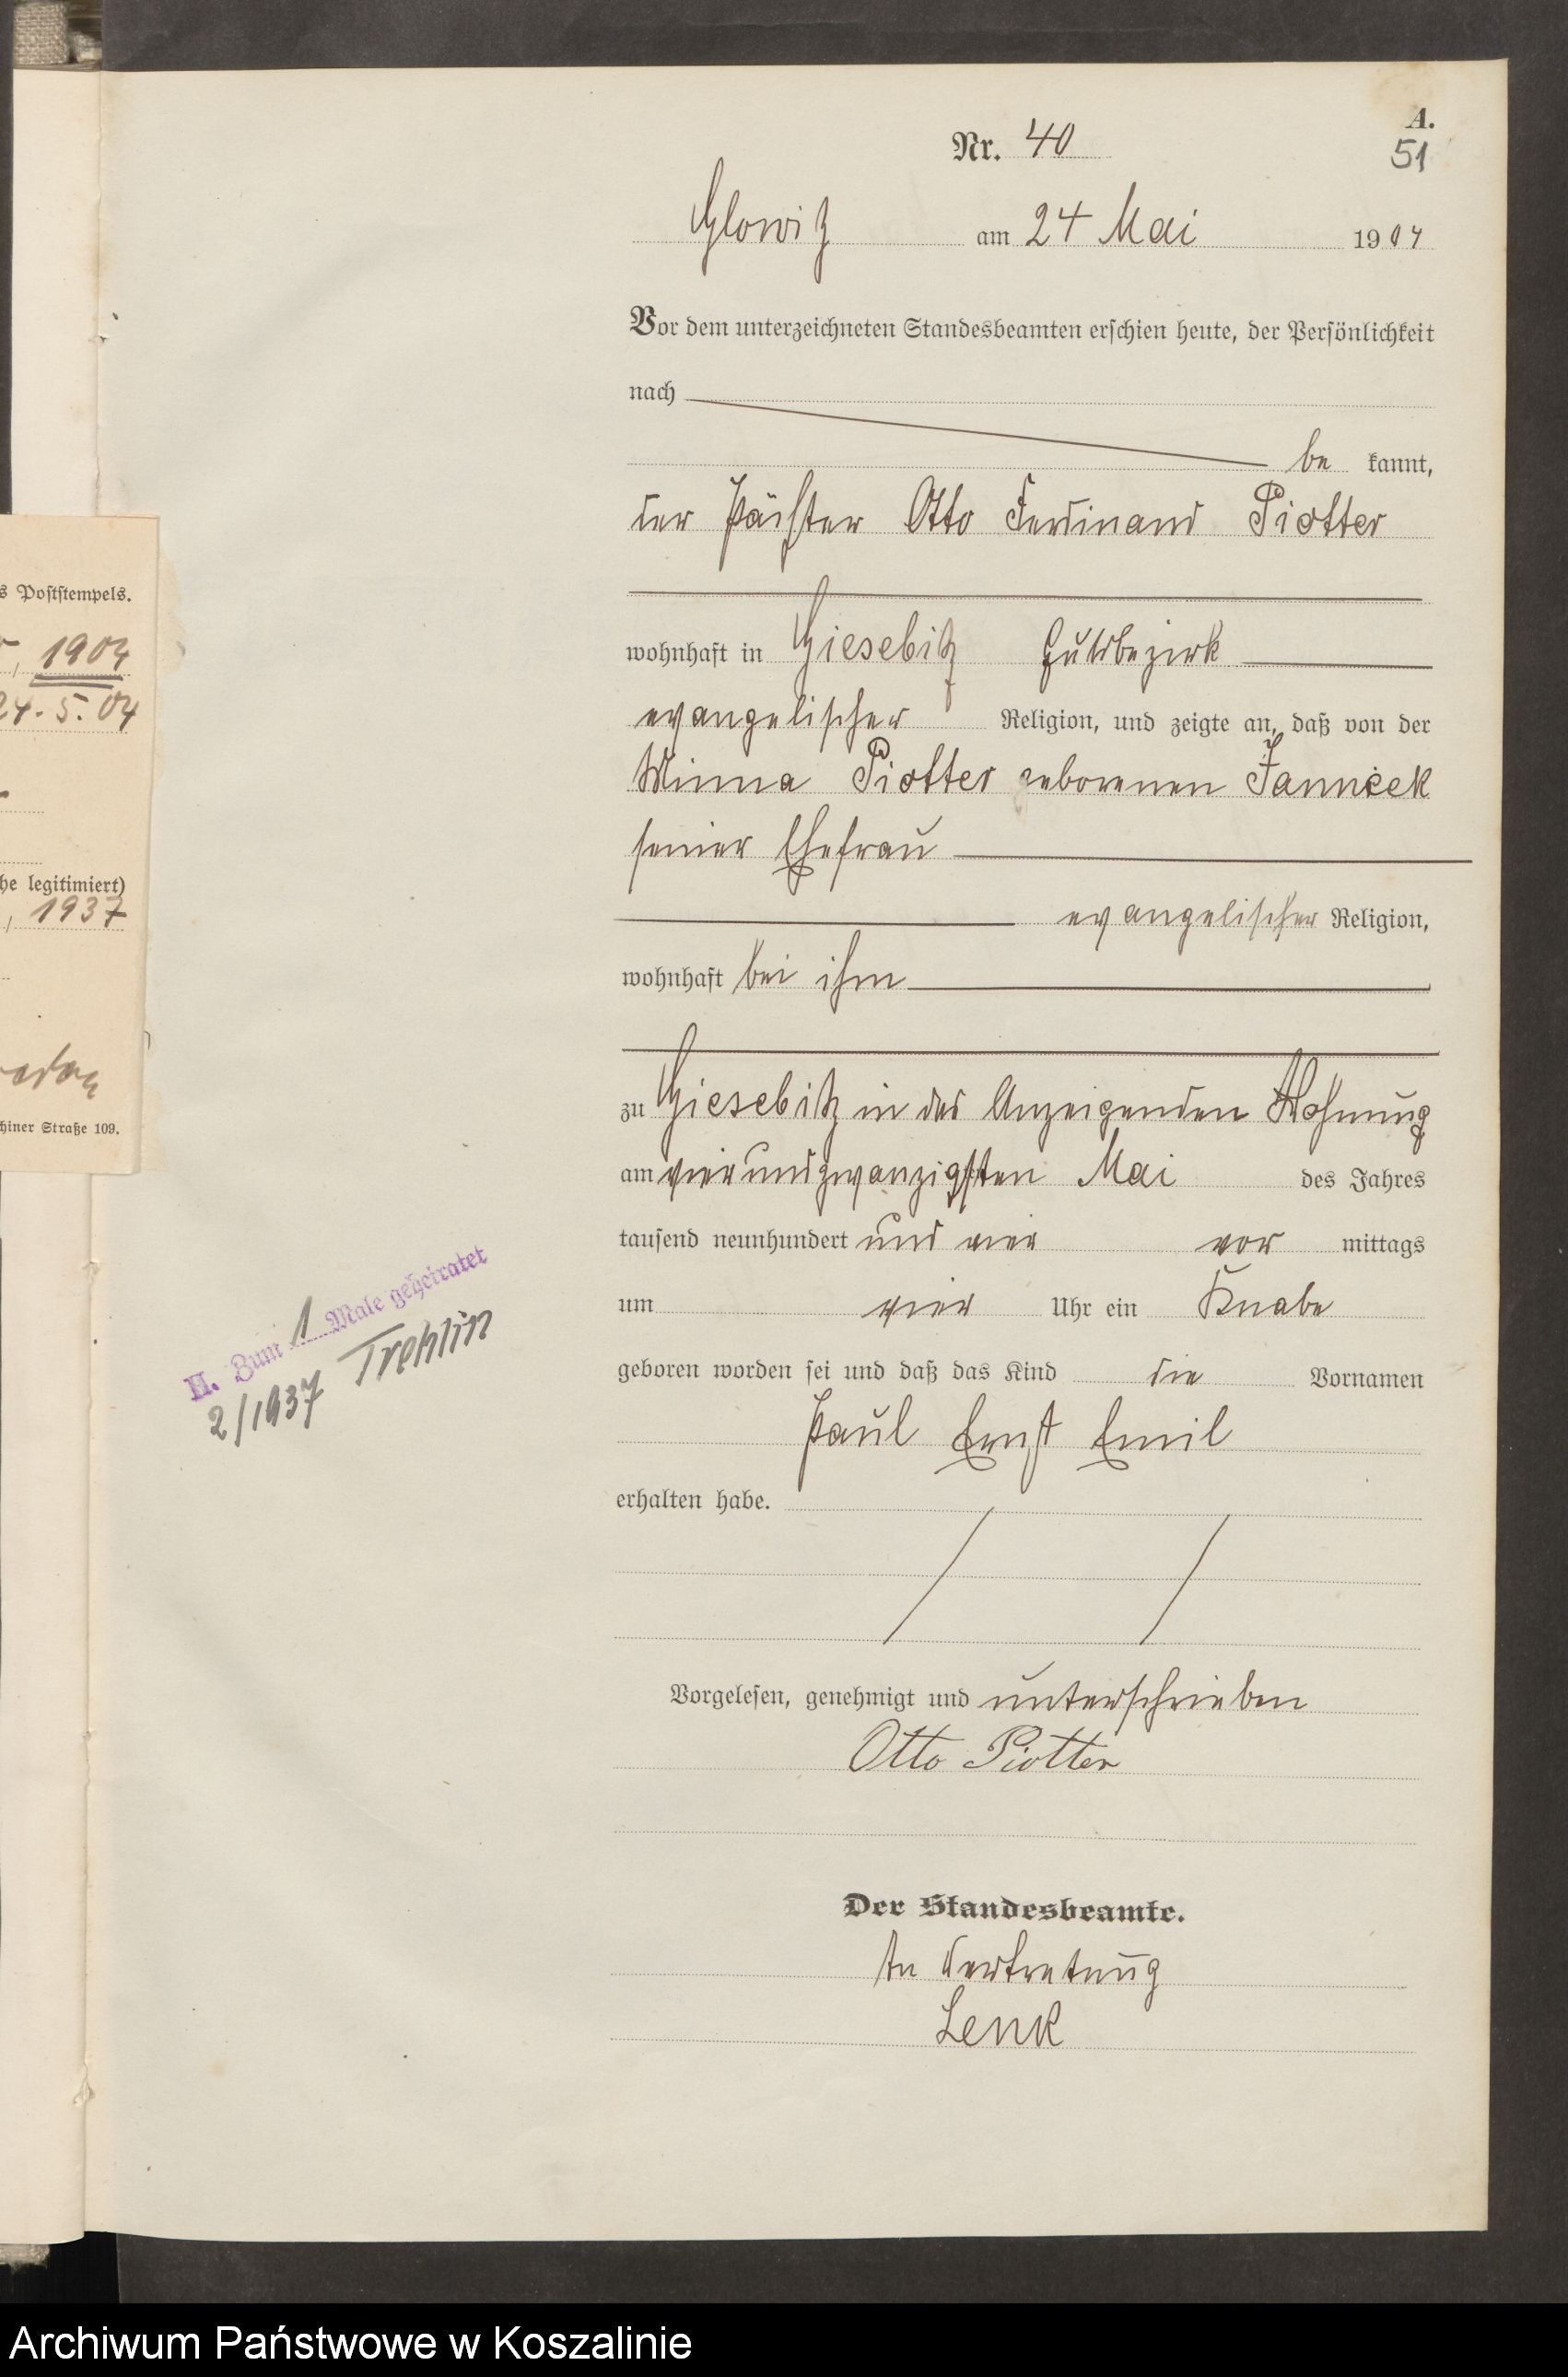 A.
Nr. 40
51
Glowitz am 24 Mai 1904
Vor dem unterzeichneten Standesbeamten erschien heute, der Persönlichkeit
nach
be kannt,
der Pächter Otto Ferdinand Piotter
wohnhaft in Giesebitz Gutsbezirk
evangelischer Religion, und zeigte an, daß von der
Minna Piotter geborenen Jannicek
seiner Ehefrau
evangelischer Religion,
wohnhaft bei ihm
zu Giesebitz in des Anzeigenden Wohnung
am vierundzwanzigsten Mai des Jahres
tausend neunhundert und vier vor mittags
um vier Uhr ein Knabe
geboren worden sei und daß das Kind die Vornamen
Paul Ernst Emil
erhalten habe.
Vorgelesen, genehmigt und unterschrieben
Otto Piotter
Der Standesbeamte.
In Vertretung
Lenk
H. Zum 1 Male geheiratet
2/1937 Treblin
s Poststempels.
, 1904
24.5.04
he legitimiert)
, 1937
hiner Straße 109.
Archiwum Państwowe w Koszalinie